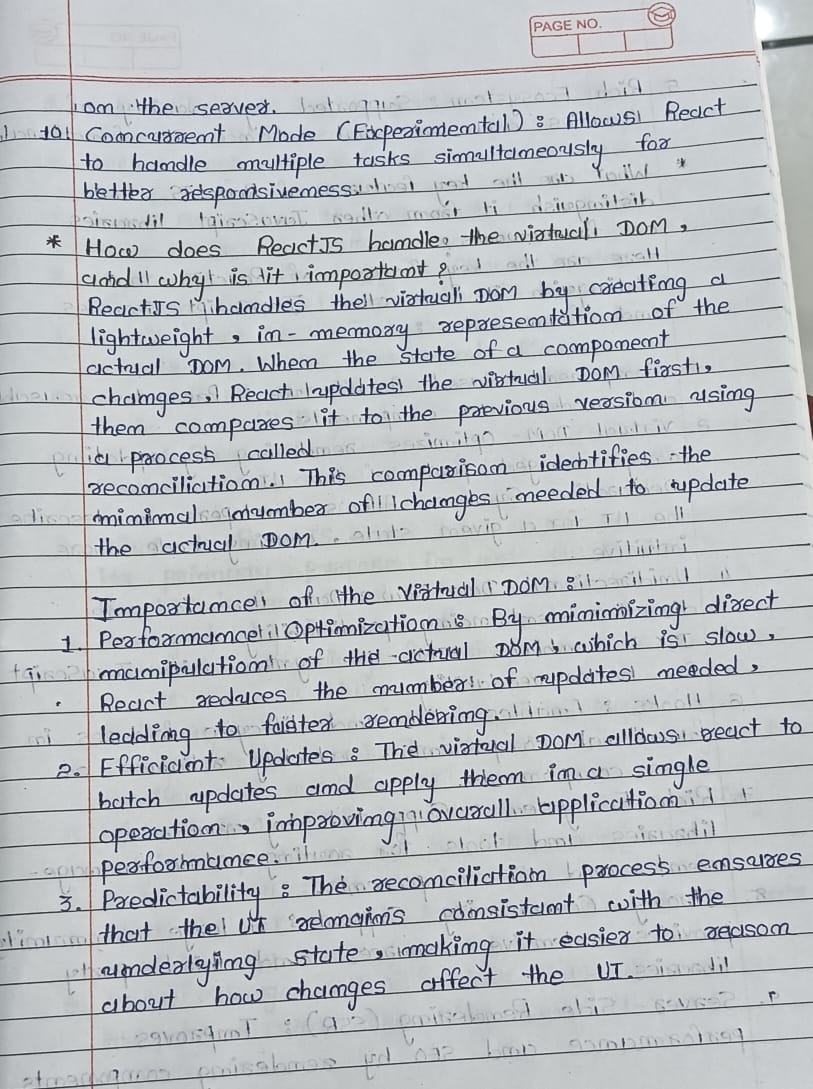 PAGE NO.
on the server.
10. Concurrent Mode (Experimental) : Allows React
to handle multiple tasks simultaneously for
better responsiveness.
* How does ReactJS handle the virtual DOM,
and why is it important ?
ReactJS handles the virtual DOM by creating a
lightweight, in-memory representation of the
actual DOM. When the state of a component
changes, React updates the virtual DOM first,
then compares it to the previous version using
a process called
reconciliation. This comparison identifies the
minimal number of changes needed to update
the actual DOM.
Importance of the Virtual DOM :
1. Performance Optimization : By minimizing direct
manipulation of the actual DOM, which is slow,
React reduces the number of updates needed,
leading to faster rendering.
2. Efficient Updates : The virtual DOM allows react to
batch updates and apply them in a single
operation, improving overall application
performance.
3. Predictability : The reconciliation process ensures
that the UI remains consistant with the
underlying state, making it easier to reason
about how changes affect the UI.